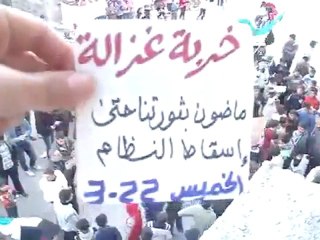 خربة غزالة
ماضون بثورتنا حتى
إسقاط النظام
الخميس 22-3